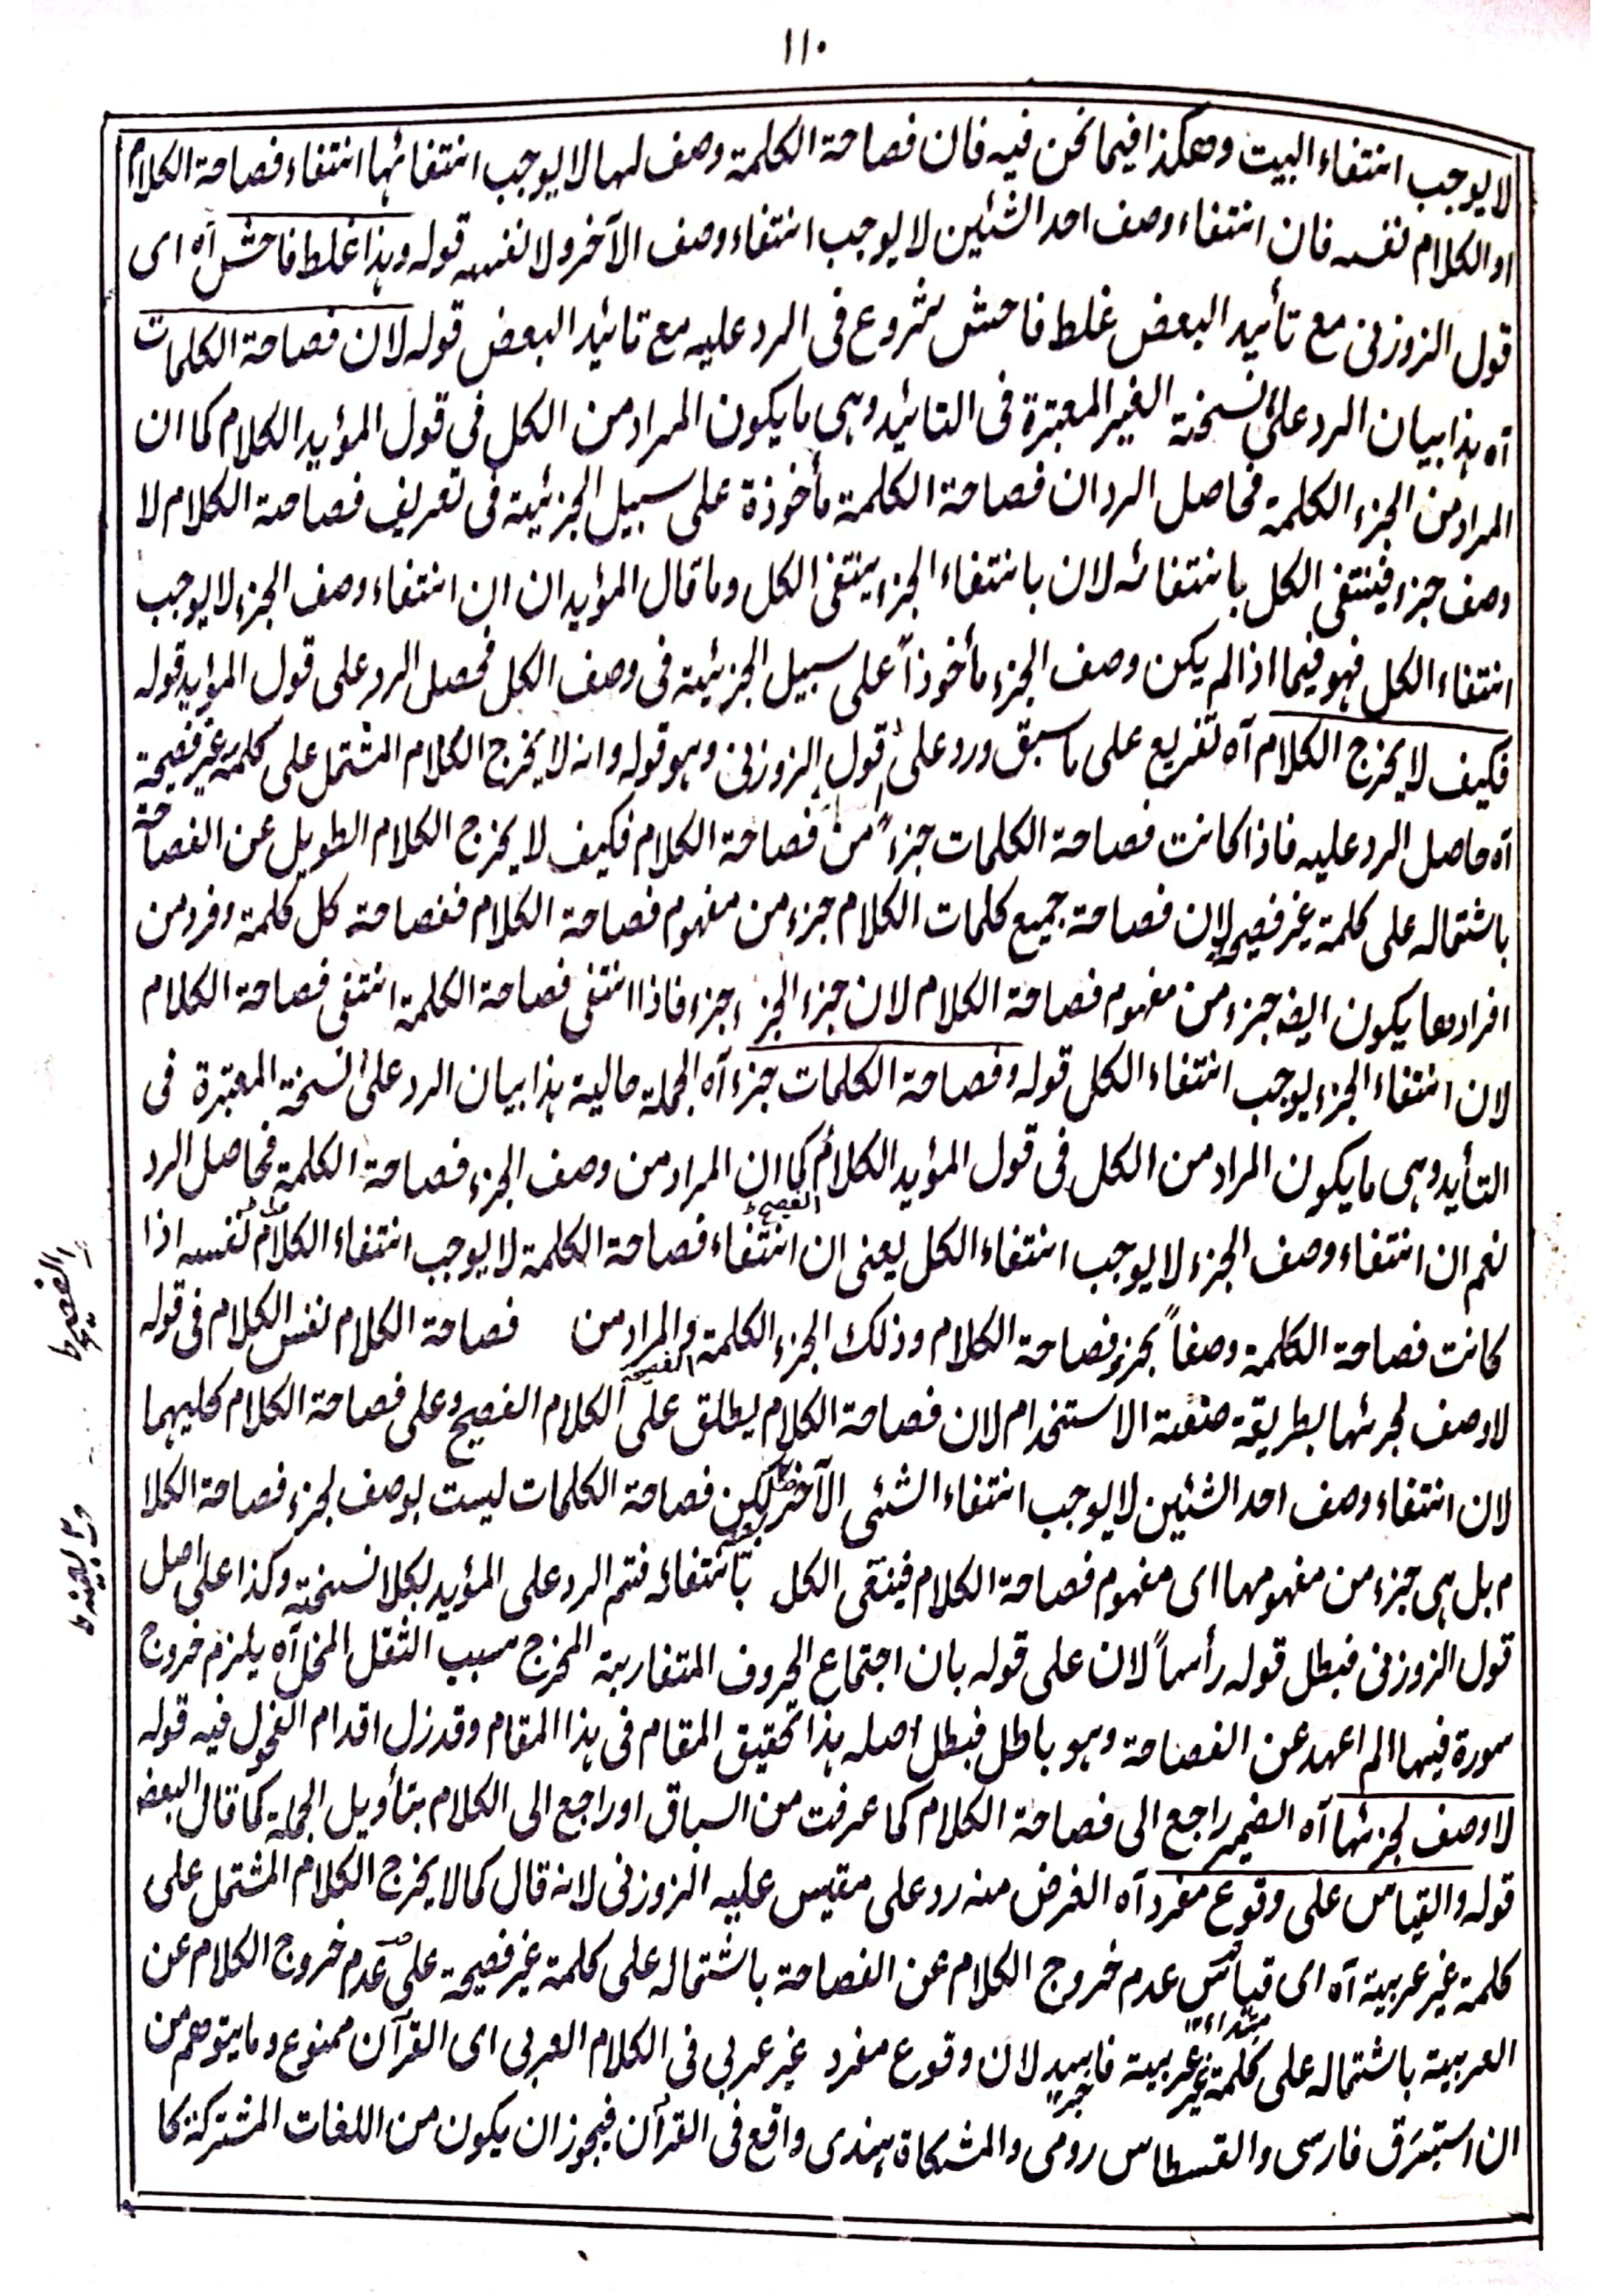 ١١٠
لا يوجب انتفاء البيت وهكذا فيما نحن فيه فان فصاحة الكلمة وصف لها لا يوجب انتفائها انتفاء فصاحة الكلام
او الكلام نفسه فان انتفاء وصف احد الشئين لا يوجب انتفاء وصف الآخر ولا نفسه قوله وهذا غلط فاحش آه اى
قول الزوزنى مع تأئيد البعض غلط فاحش شروع فى الرد عليه مع تائيد البعض قوله لان فصاحة الكلمات
آه هذا بيان الرد على نسخة الغير المعتبرة فى التائيد وهى ما يكون المراد من الكل فى قول المؤيد الكلام كما ان
المراد من الجزء الكلمة فحاصل الرد ان فصاحة الكلمة مأخوذة على سبيل الجزئية فى تعريف فصاحة الكلام لا
وصف جزء فينتفى الكل بانتفائه لان بانتفاء الجزء ينتفى الكل وما قال المؤيد ان ان انتفاء وصف الجزء لا يوجب
انتفاء الكل فهو فيما اذا لم يكن وصف الجزء مأخوذاً على سبيل الجزئية فى وصف الكل فحصل الرد على قول المؤيد قوله
فكيف لا يخرج الكلام آه تفريع على ما سبق ورد على قول الزوزنى وهو قوله وانه لا يخرج الكلام المشتمل على كلمة غير فصيحة
آه حاصل الرد عليه فاذا كانت فصاحة الكلمات جزءً من فصاحة الكلام فكيف لا يخرج الكلام الطويل عن الفصاحة
باشتماله على كلمة غير فصيحة لان فصاحة جميع كلمات الكلام جزء من مفهوم فصاحة الكلام ففصاحة كل كلمة وفرد من
افرادها يكون ايضہ جزء من مفهوم فصاحة الكلام لان جزء الجزء جزء فاذا انتفى فصاحة الكلمة انتفى فصاحة الكلام
لان انتفاء الجزء يوجب انتفاء الكل قوله وفصاحة الكلمات جزء آه الجملة حالية هذا بيان الرد على نسخة المعتبرة فى
التأيد وهى ما يكون المراد من الكل فى قول المؤيد الكلام كما ان المراد من وصف الجزء فصاحة الكلمة فحاصل الرد
الفصيح
نعم ان انتفاء وصف الجزء لا يوجب انتفاء الكل يعنى ان انتفاء فصاحة الكلمة لا يوجب انتفاء الكلام نفسه اذا
الفصيح
كانت فصاحة الكلمة وصفاً بجزء فصاحة الكلام وذلك الجزء الكلمة والمراد من فصاحة الكلام نفس الكلام فى قوله
لا وصف لجزئها بطريقة صنعة الاستخدام لان فصاحة الكلام يطلق على الكلام الفصيح وعلى فصاحة الكلام كليهما
لان انتفاء وصف احد الشئين لا يوجب انتفاء الشئى الآخر لكن فصاحة الكلمات ليست بوصف لجزء فصاحة الكلا
م بل هى جزء من مفهومها اى مفهوم فصاحة الكلام فينتفى الكل بانتفائه فتم الرد على المؤيد بكلا نسخته وكذا على اصل
قول الزوزنى فبطل قوله رأساً لان على قوله بان اجتماع الحروف المتقاربة المخرج سبب الثقل المخل آه يلزم خروج
سورة فيها الم اعهد عن الفصاحة وهو باطل فبطل اصله هذا تحقيق المقام فى هذا المقام وقد زل اقدام الفحول فيه قوله
لا وصف لجزئها آه الضمير راجع الى فصاحة الكلام كما عرفت من السباق او راجع الى الكلام بتأويل الجملة كما قال البعض
قوله والقياس على وقوع مفرد آه الغرض منه رد على مقيس عليه الزوزنى لانه قال كما لا يخرج الكلام المشتمل على
كلمة غير عربية آه اى قياس عدم خروج الكلام عن الفصاحة باشتماله على كلمة غير فصيحة على عدم خروج الكلام عن
مبتداء
العربية باشتماله على كلمة غير عربية فاسد لان وقوع مفرد غير عربى فى الكلام العربى اى القرآن ممنوع وما يتوهم من
خبر
ان استبرق فارسى والقسطاس رومى والمشكاة هندى واقع فى القرآن فيجوز ان يكون من اللغات المشتركة كا